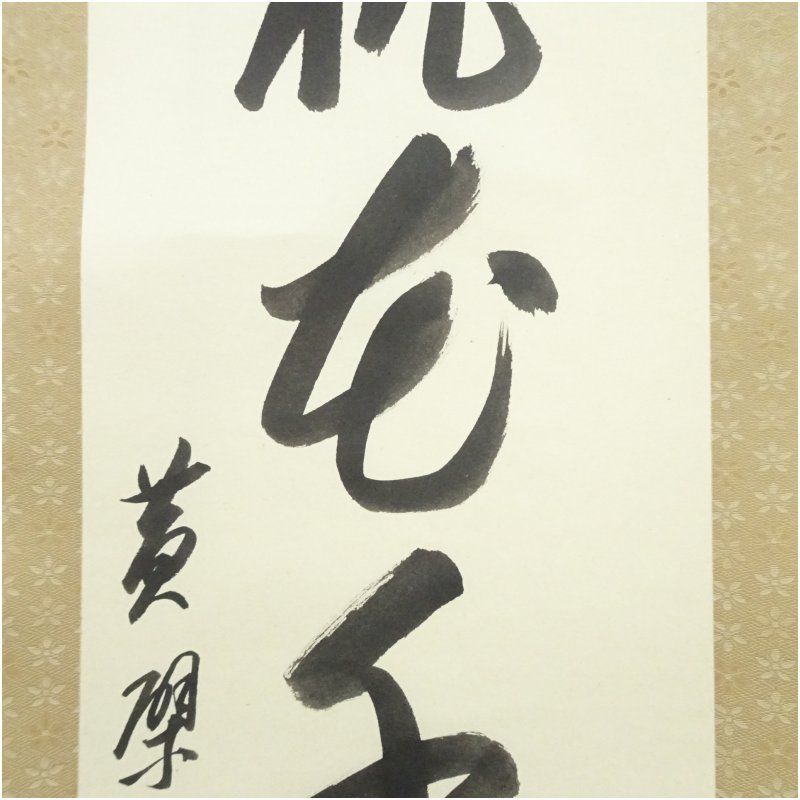 花千
黄檗